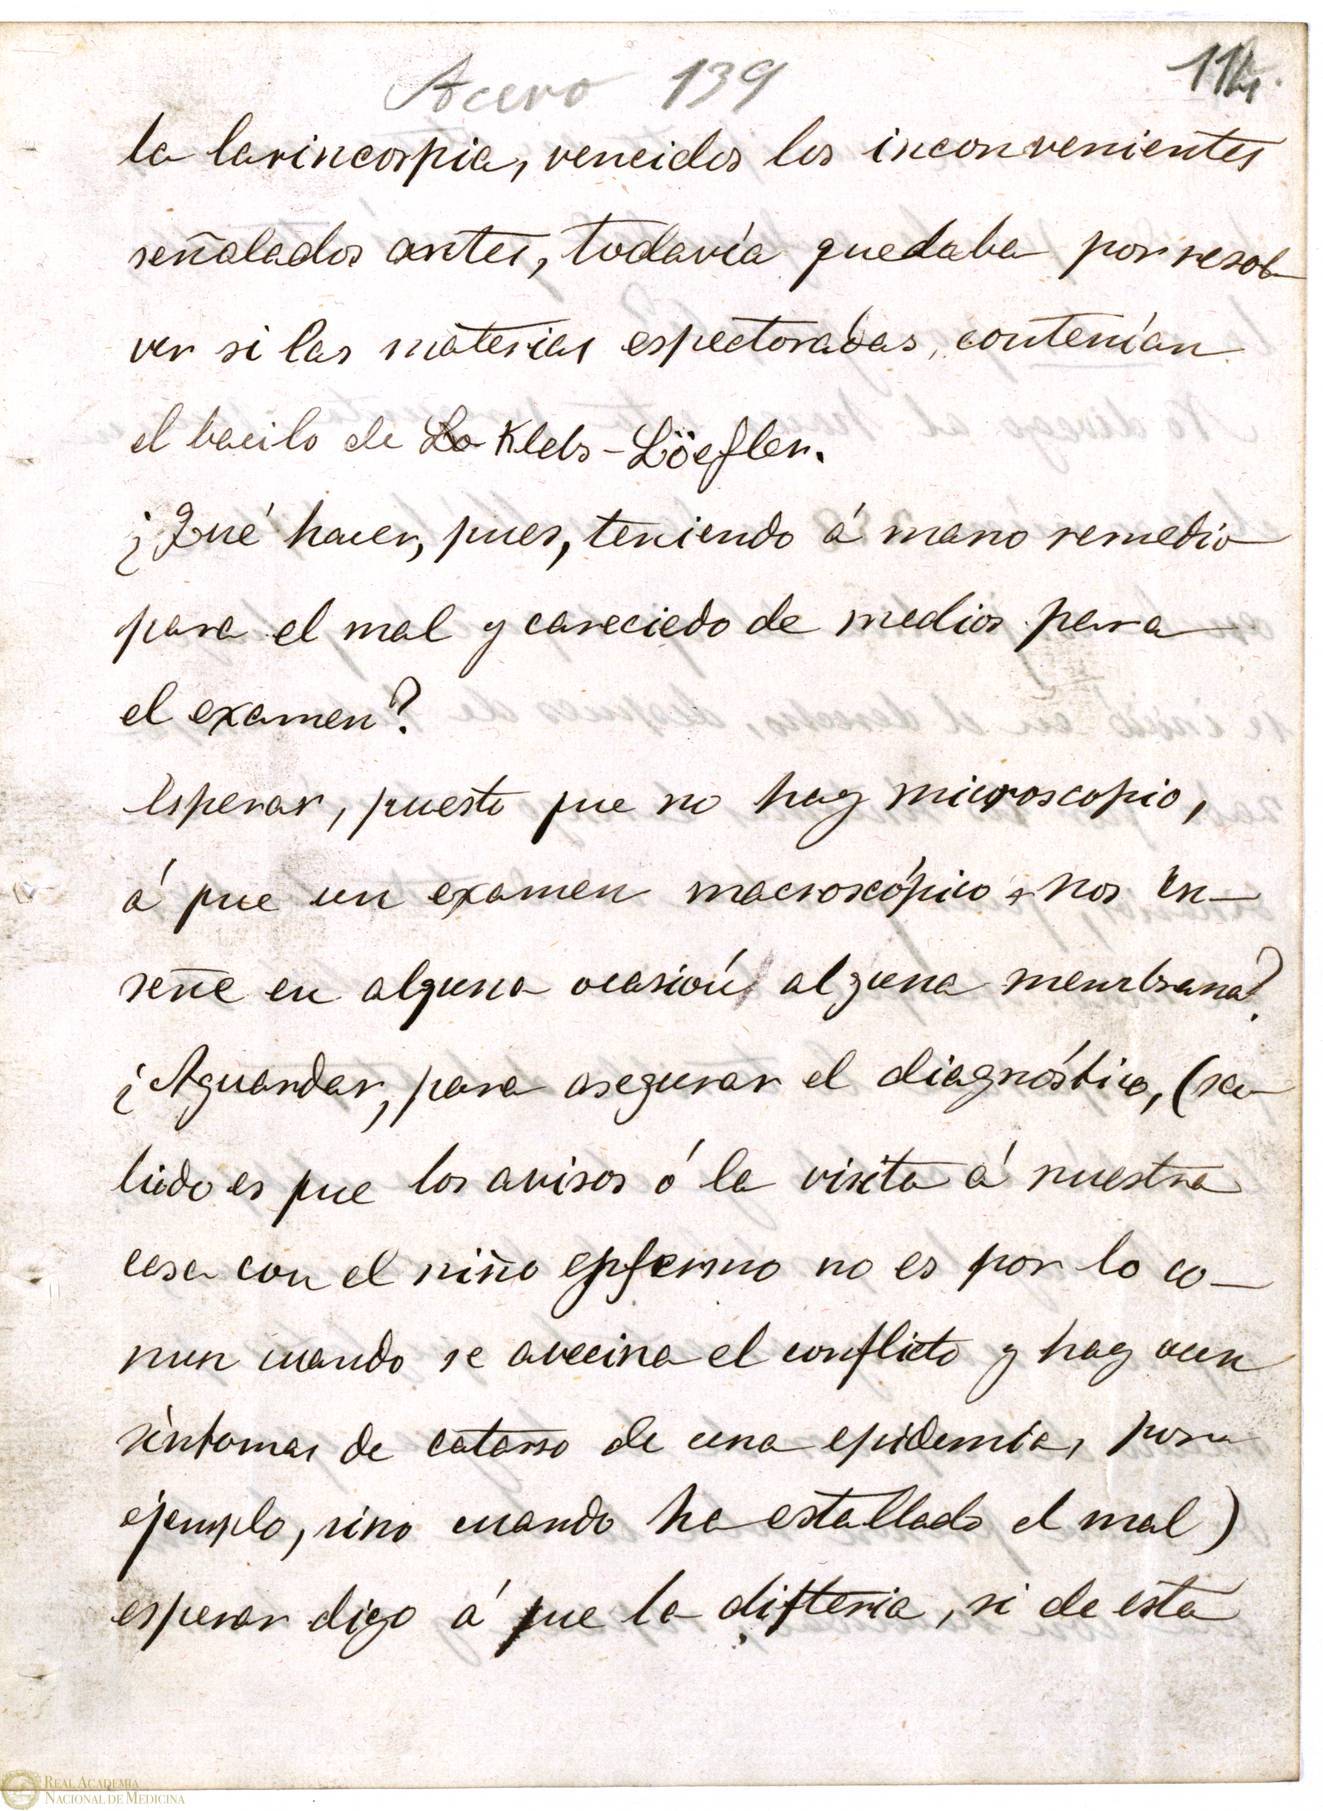 Acero 139
114.
la larincospia, vencidos los inconvenientes
señalados antes, todavía quedaba por resol
ver si las materias espectoradas, contenían
el bacilo de Klebs-Löefler.
¿Qué hacer, pues, teniendo á mano remedio
para el mal y careciedo de medios para
el examen?
Esperar, puesto que no hay microscopio,
á que un examen macroscópico nos en-
señe en alguna ocasión alguna membrana?
¿Aguardar, para asegurar el diagnóstico, (sa
bido es que los avisos ó la visita á nuestra
casa con el niño enfermo no es por lo co-
mun cuando se avecina el conflicto y hay aun
síntomas de catarro de una epidemia, por
ejemplo, sino cuando ha estallado el mal)
esperar digo á que la difteria, si de esta
REAL ACADEMIA
NACIONAL DE MEDICINA